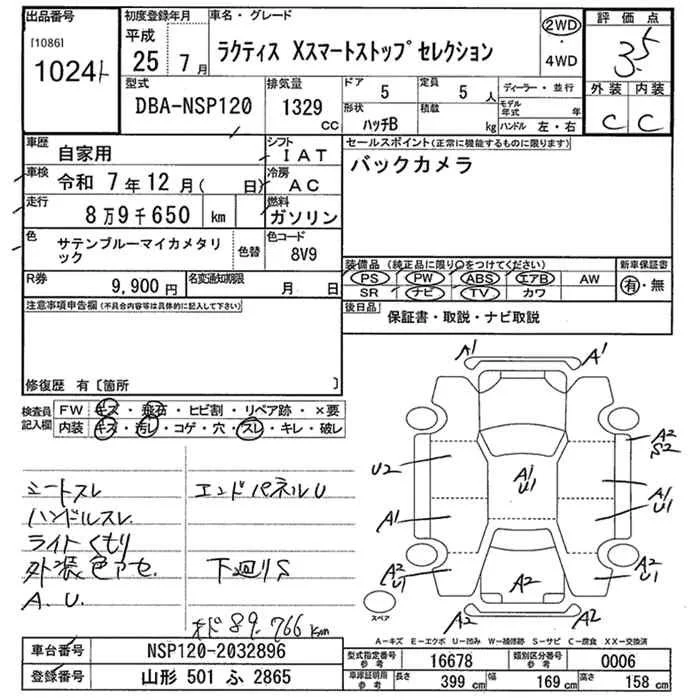 出品番号
[1086]
1024ト
初度登録年月
平成
25年 7月
車名・グレード
ラクティス Xスマートストップセレクション
2WD
・
4WD
評価点
3.5
外装 内装
C C
型式
DBA-NSP120
排気量
1329
CC
ドア
5
定員
5 人
形状
ハッチB
積載
kg
ディーラー・並行
モデル年式 年
ハンドル 左・右
車歴
自家用
シフト
IAT
車検 令和 7年12月( 日)
冷房
AC
走行
8万9千650 km
燃料
ガソリン
色
サテンブルーマイカメタリック
色替
色コード
8V9
R券
9,900円
名変通知期限
月 日
セールスポイント(正常に機能するものに限ります)
バックカメラ
装備品 (純正品に限り○をつけてください)
PS PW ABS エアB AW
SR ナビ TV カワ
新車保証書
有・無
後日品
保証書・取説・ナビ取説
注意事項申告欄(不具合内容等は具体的に記入して下さい)
修復歴 有〔箇所 〕
検査員記入欄
FW キズ・飛石・ヒビ割・リペア跡・×要
内装 キズ・汚レ・コゲ・穴・スレ・キレ・破レ
シートスレ
ハンドルスレ
ライトくもり
外装色アセ.
A.U.
エンドパネルU
下廻りS
オド89.766km
A1
A1
U2
A1
A2
U1
A1
U1
A2
S2
A1
U1
A2
U1
A2
A2
A2
スペア
A-キズ E-エクボ U-凹み W-補修跡 S-サビ C-腐食 XX-交換済
車台番号
NSP120-2032896
登録番号
山形 501 ふ 2865
型式指定番号
参考
16678
類別区分番号
参考
0006
車庫証明所
参考
長さ
399 cm
幅
169 cm
高さ
158 cm